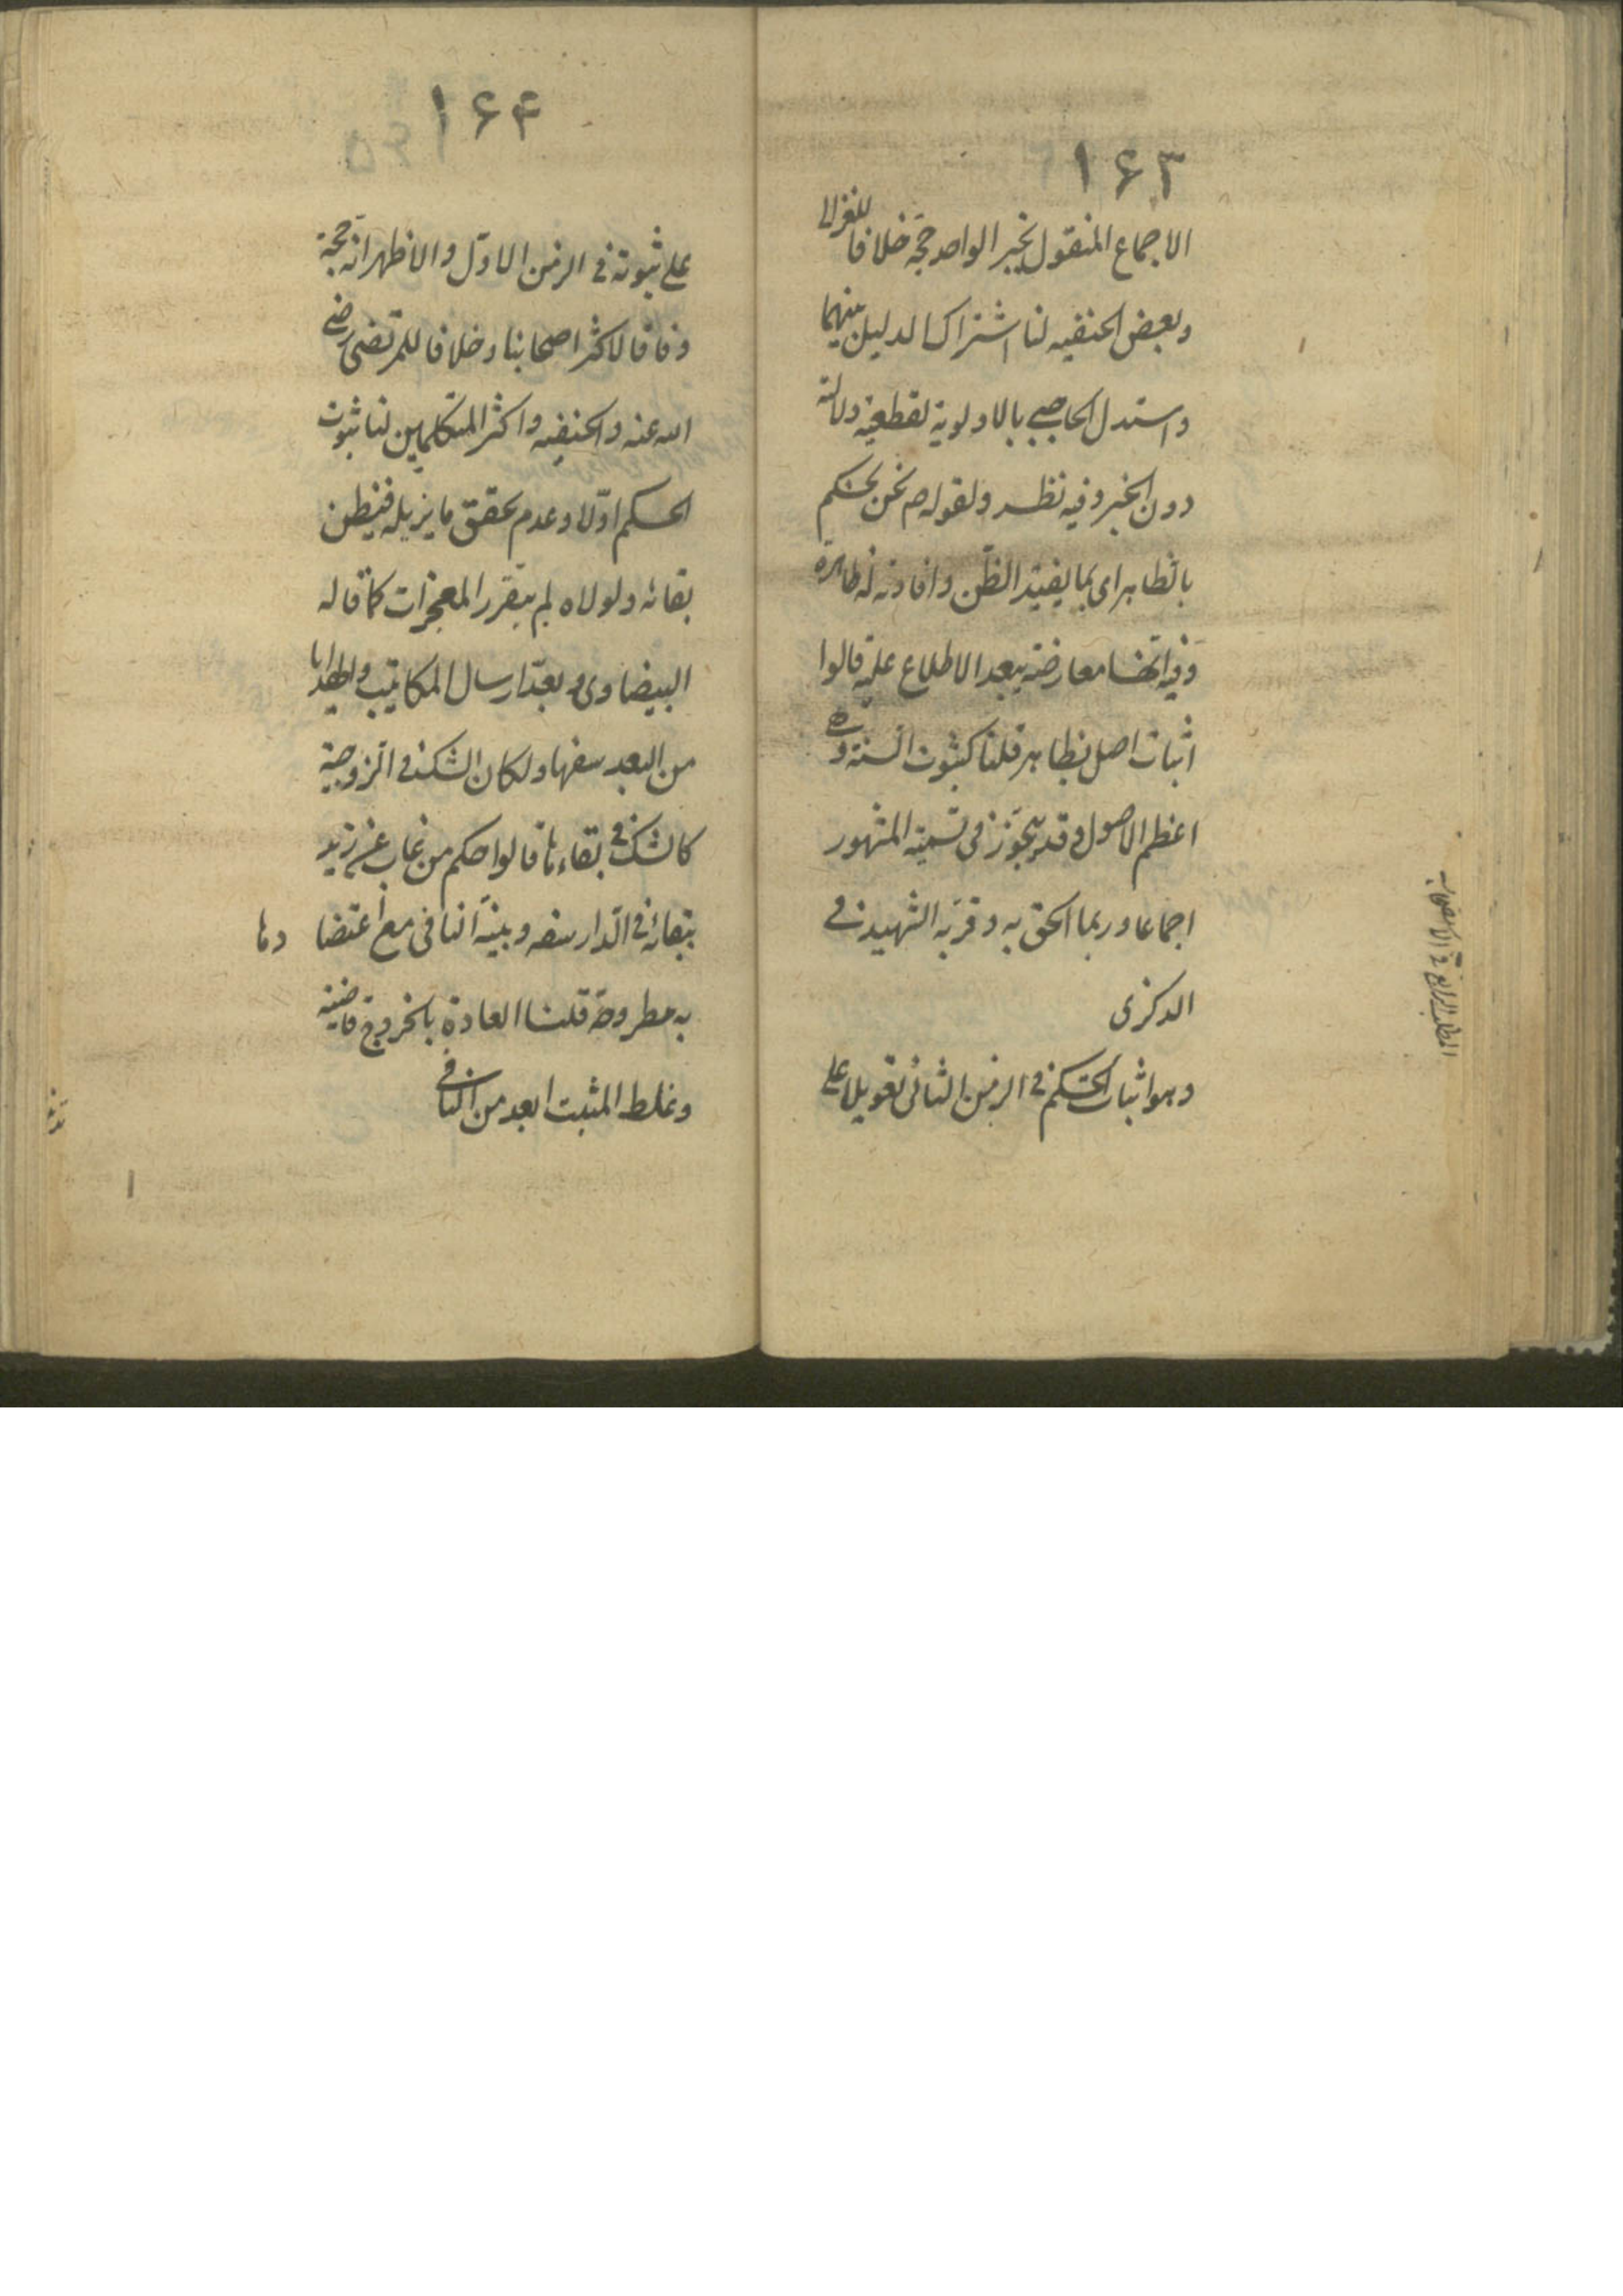 ۱۶۳
الاجماع المنقول بخبر الواحد حجّة خلافا للغزالی
وبعض الحنفیه لنا اشتراک الدلیل بینهما
واستدل الحاجبی بالاولویة لقطعیّة دلالته
دون الخبر وفیه نظر ولقوله ص نحن نحکم
بالظاهر ای بما یفید الظّن وافادته له ظاهرة
وفیه انها معارضة ببعد الاطلاع علیه قالوا
اثبات اصل بظاهر قلنا کثبوت السنّة وهی
اعظم الاصول وقد یتجوّز فی تسمیة المشهور
اجماعا وربما الحق به وقربّه الشهید فی
الذکری
وهو اثبات الحکم فی الزمن الثانی تعویلا علی
المطلب الرابع فی الاستصحاب
۱۶۴
علی ثبوته فی الزمن الاوّل والاظهر انه حجّة
وفاقا لاکثر اصحابنا وخلافا للمرتضی رضی
الله عنه والحنفیه واکثر المتکلمین لنا ثبوت
الحکم اوّلا وعدم تحقق ما یزیله فیظن
بقائه ولولاه لم یتقرر المعجزات کما قاله
البیضاوی ولعدّ ارسال المکاتیب والهدایا
من البعد سفها ولکان الشک فی الزوجیة
کالشک فی بقاءها قالوا حکم من غاب عن زید
ببقائه فی الدار سفه وبینة النافی مع اعتضا دها
به مطروحة قلنا العادة بالخروج قاضیة
وغلط المثبت ابعد من النافی